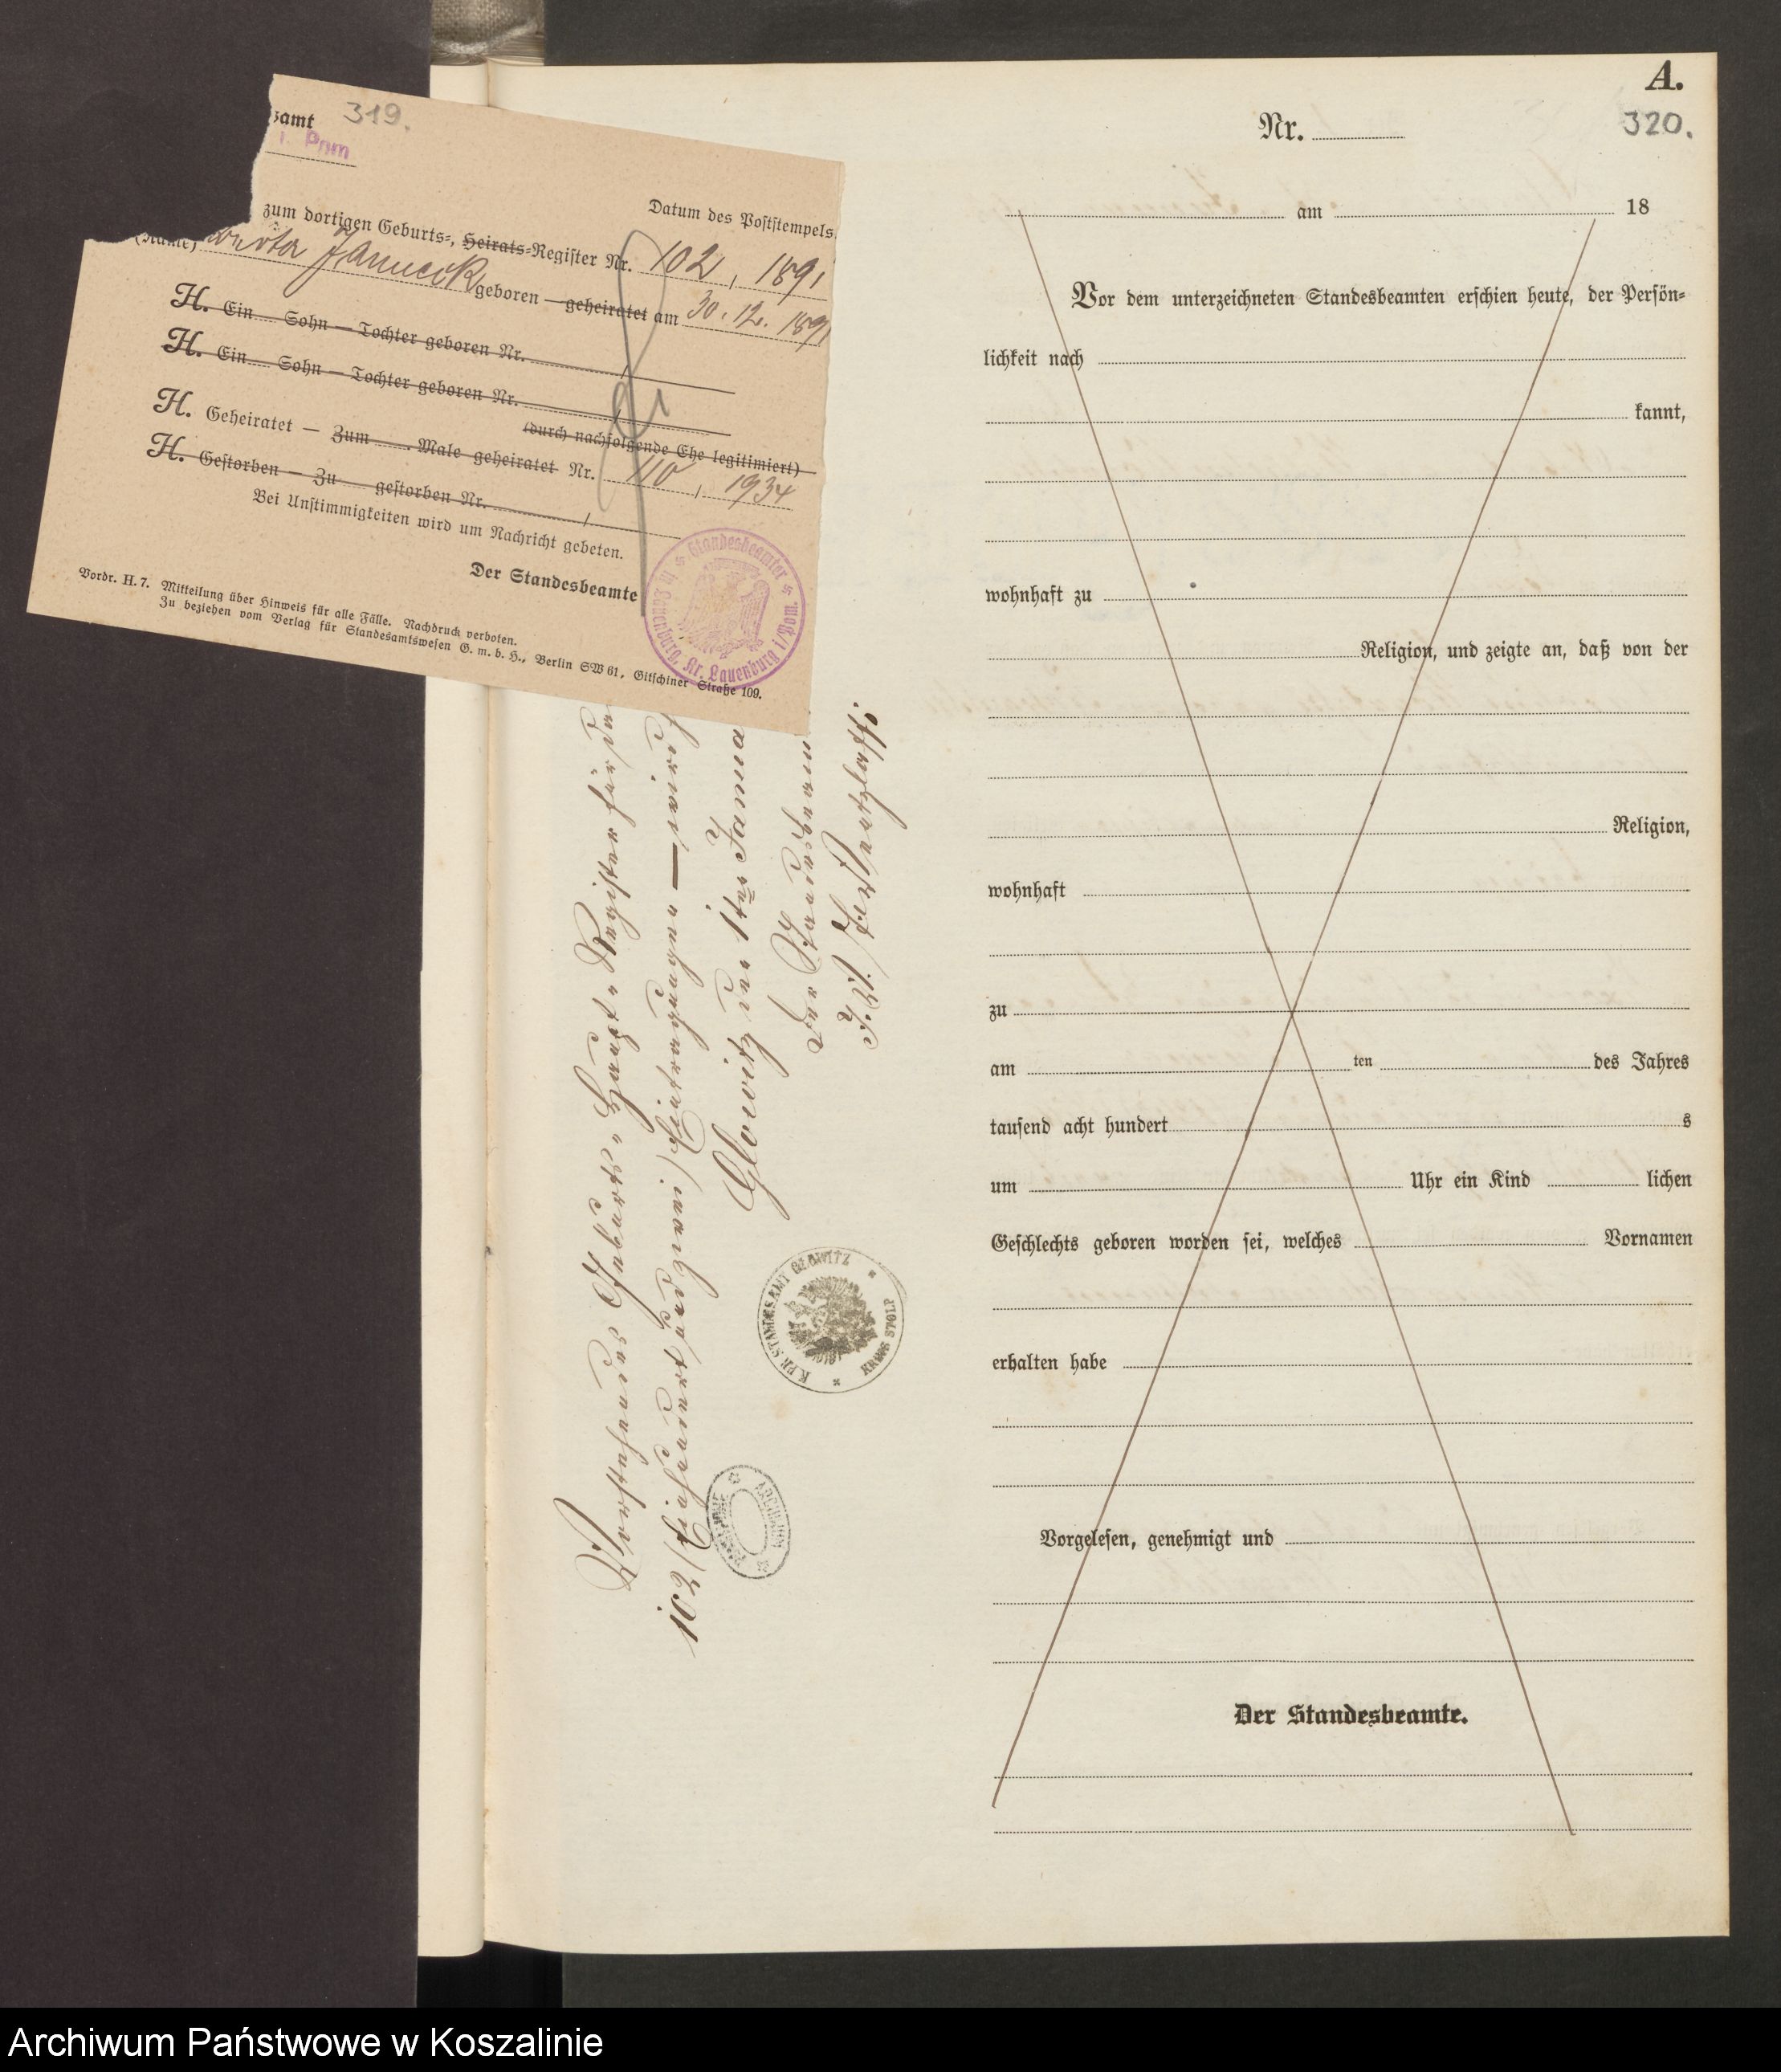 zamt 319.
i. Pom
Datum des Poststempels.
zum dortigen Geburts-, Heirats-Register Nr. 102, 1891
(Name) Janueck geboren — geheiratet am 30.12.1891
H. Ein Sohn — Tochter geboren Nr. /
H. Ein Sohn — Tochter geboren Nr. /
(durch nachfolgende Ehe legitimiert)
H. Geheiratet — Zum Male geheiratet Nr. 110, 1934
H. Gestorben — Zu gestorben Nr. /
Bei Unstimmigkeiten wird um Nachricht gebeten.
Der Standesbeamte
Standesbeamter in Zewenburg, Kr. Lauenburg i/Pom.
Vordr. H. 7. Mitteilung über Hinweis für alle Fälle. Nachdruck verboten.
Zu beziehen vom Verlag für Standesamtswesen G. m. b. H., Berlin SW 61, Gitschiner Straße 109.
Vorstehendes Geburts-Haupt-Register für das
102 (Einhundert und zwei) Eintragungen — wird
Glowitz den 1ten Janua
Der Standesbeam
I. V. Fertzlaff
K. PR. STANDESAMT GLOWITZ * KREIS STOLP *
A.
Nr.
320.
am 18
Vor dem unterzeichneten Standesbeamten erschien heute, der Persön-
lichkeit nach
kannt,
wohnhaft zu
Religion, und zeigte an, daß von der
Religion,
wohnhaft
zu
am ten des Jahres
tausend acht hundert s
um Uhr ein Kind lichen
Geschlechts geboren worden sei, welches Vornamen
erhalten habe
Vorgelesen, genehmigt und
Der Standesbeamte.
Archiwum Państwowe w Koszalinie